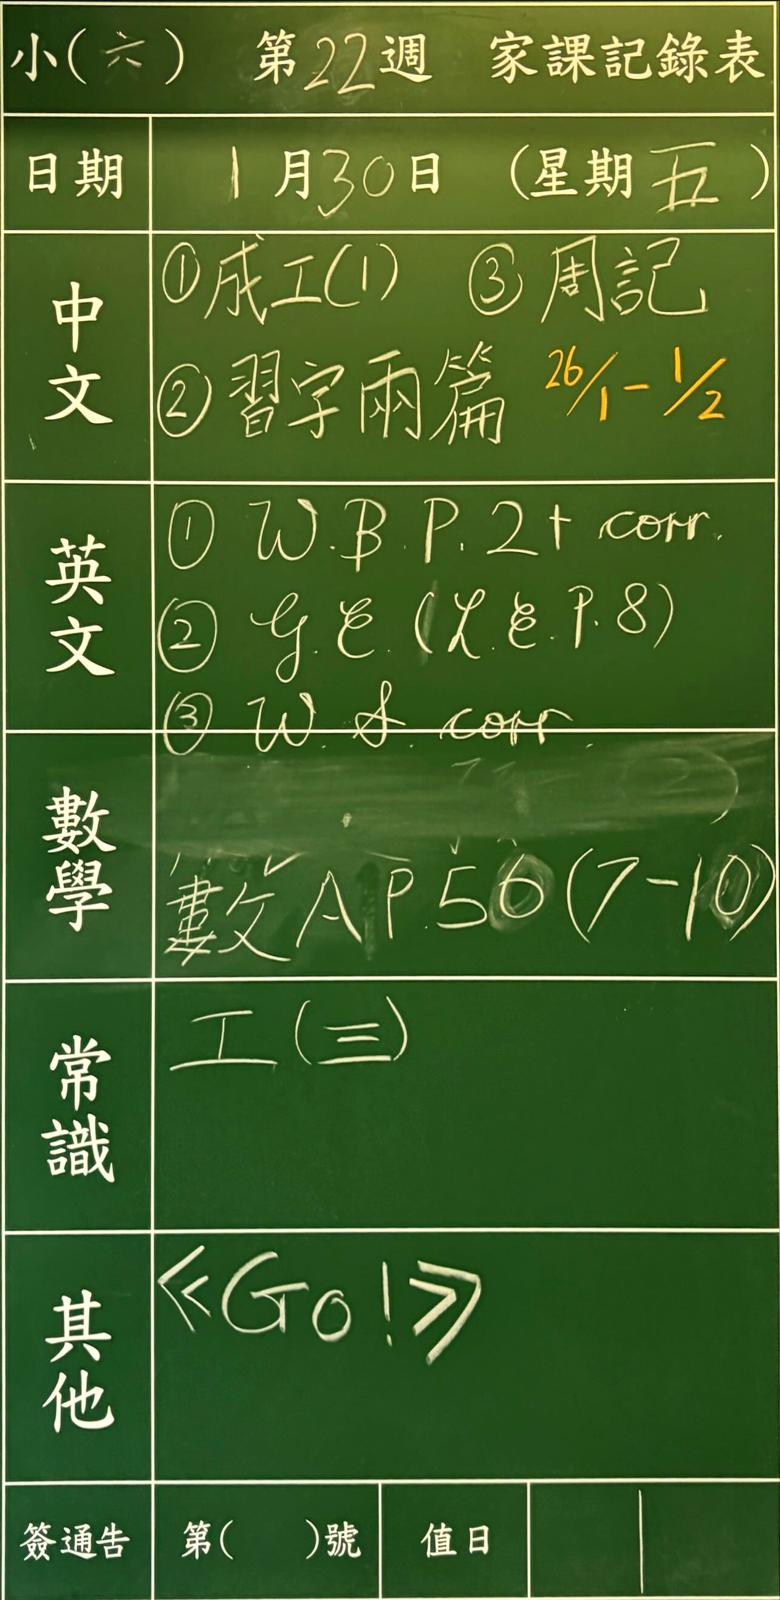 小(六) 第22週 家課記錄表
日期 1月30日 (星期五)
中文
①成工(1) ③周記
②習字兩篇 26/1-1/2
英文
① W.B.P.2+ corr.
② G.E. (L.E.P.8)
③ W.S. corr.
數學
數AP.56(7-10)
常識
工(三)
其他
《Go!》
簽通告 第( )號 值日